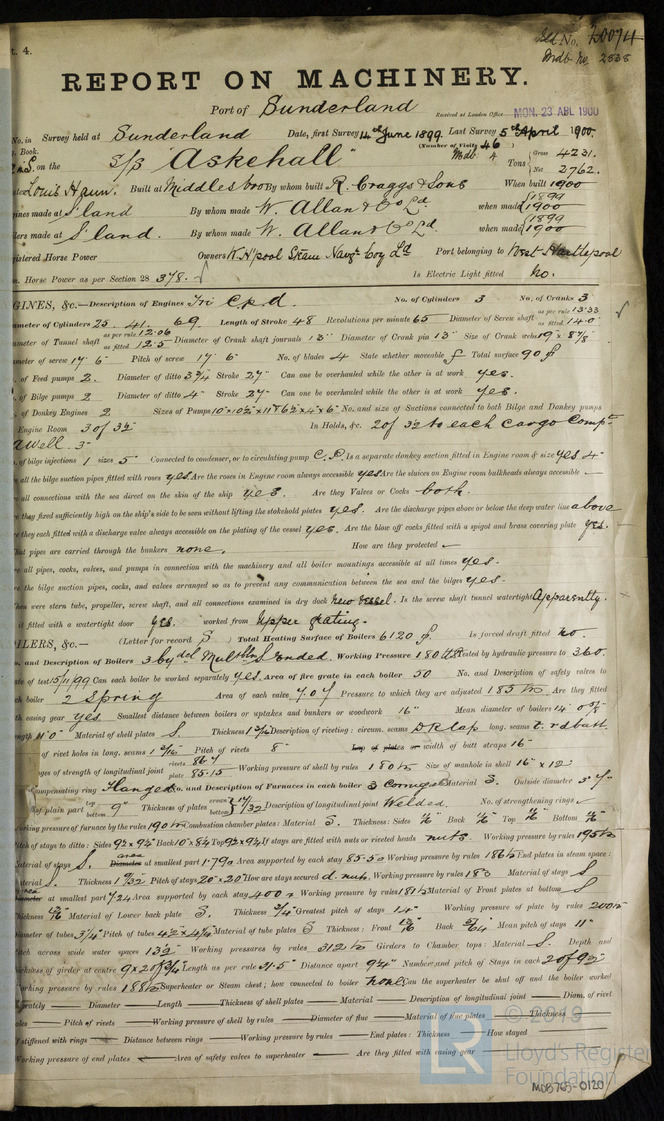 t. 4.
No. 20074
Mdb no 2838
REPORT ON MACHINERY.
Port of Sunderland
Received at London Office MON. 23 APL 1900
No. in Survey held at Sunderland Date, first Survey 14th June 1899 Last Survey 5th April 1900.
Book. (Number of Visits 46)
on the S/S "Askehall" Tons Gross 4231. Net 2762.
Louis Hann. Built at Middlesbro By whom built R. Craggs & Sons When built 1900
gines made at S'land By whom made W. Allan & Co Ld when made 1899 1900
lers made at S'land. By whom made W. Allan & Co Ld. when made 1899 1900
gistered Horse Power Owners W. H'pool Steam Navgtn Coy Ld Port belonging to West Hartlepool
m. Horse Power as per Section 28 378. Is Electric Light fitted No.
GINES, &c.—Description of Engines Tri Cpd. No. of Cylinders 3 No. of Cranks 3
ameter of Cylinders 25. 41. 69 Length of Stroke 48 Revolutions per minute 65 Diameter of Screw shaft as per rule 13.33 as fitted 14.0
ameter of Tunnel shaft as per rule 12.06 as fitted 12.5 Diameter of Crank shaft journals 13" Diameter of Crank pin 13" Size of Crank webs 19" x 8 7/8
ameter of screw 17' 6" Pitch of screw 17' 6" No. of blades 4 State whether moveable Total surface 90 f
. of Feed pumps 2. Diameter of ditto 3 3/4 Stroke 27" Can one be overhauled while the other is at work yes.
. of Bilge pumps 2. Diameter of ditto 4" Stroke 27" Can one be overhauled while the other is at work yes.
. of Donkey Engines 2 Sizes of Pumps No. and size of Suctions connected to both Bilge and Donkey pumps
Engine Room 3 of 3 1/2 In Holds, &c. 2 of 3 1/2 to each Cargo Compt
Well. 3"
. of bilge injections 1 sizes 5" Connected to condenser, or to circulating pump C.P. Is a separate donkey suction fitted in Engine room & size yes 4"
e all the bilge suction pipes fitted with roses yes. Are the roses in Engine room always accessible yes Are the sluices on Engine room bulkheads always accessible —
e all connections with the sea direct on the skin of the ship yes. Are they Valves or Cocks both.
e they fixed sufficiently high on the ship's side to be seen without lifting the stokehold plates yes. Are the discharge pipes above or below the deep water line above
e they each fitted with a discharge valve always accessible on the plating of the vessel yes. Are the blow off cocks fitted with a spigot and brass covering plate yes.
hat pipes are carried through the bunkers none. How are they protected —
e all pipes, cocks, valves, and pumps in connection with the machinery and all boiler mountings accessible at all times yes.
re the bilge suction pipes, cocks, and valves arranged so as to prevent any communication between the sea and the bilges yes.
hen were stern tube, propeller, screw shaft, and all connections examined in dry dock new vessel. Is the screw shaft tunnel watertight Apparently.
it fitted with a watertight door yes. worked from Upper grating.
OILERS, &c.— (Letter for record S) Total Heating Surface of Boilers 6120 f. Is forced draft fitted no.
. and Description of Boilers 3 Cyl Multblr S. ended. Working Pressure 180 lbs Tested by hydraulic pressure to 360.
ate of test 15/11/99 Can each boiler be worked separately yes. Area of fire grate in each boiler 50 No. and Description of safety valves to
ch boiler 2 Spring Area of each valve 7.07 Pressure to which they are adjusted 185 lbs Are they fitted
th easing gear yes Smallest distance between boilers or uptakes and bunkers or woodwork 16" Mean diameter of boilers
ngth 11'0" Material of shell plates S. Thickness Description of riveting: circum. seams D R lap long. seams t. r d butt.
of rivet holes in long. seams Pitch of rivets 8" Lap of plates or width of butt straps 16"
ages of strength of longitudinal joint rivets 86.7 plate 85.15 Working pressure of shell by rules 180 lbs Size of manhole in shell 16" x 12"
Compensating ring Flanged No. and Description of Furnaces in each boiler 3 Corrugd Material S. Outside diameter 3' 7"
of plain part top bottom 9" Thickness of plates crown bottom 17/32 Description of longitudinal joint Welded. No. of strengthening rings
orking pressure of furnace by the rules 190 lbs Combustion chamber plates: Material S. Thickness: Sides Back Top Bottom
itch of stays to ditto: Sides Back Top If stays are fitted with nuts or riveted heads nuts. Working pressure by rules 195 lbs
aterial of stays S. Diameter area at smallest part 1.79 Area supported by each stay 85.5 Working pressure by rules 186 lbs End plates in steam space:
aterial S. Thickness 1 9/32 Pitch of stays 20" x 20" How are stays secured d. nuts. Working pressure by rules Material of stays S
at smallest part 7.24 Area supported by each stay 400 Working pressure by rules 181 lbs Material of Front plates at bottom S
hickness Material of Lower back plate S. Thickness 3/4" Greatest pitch of stays 14" Working pressure of plate by rules 200 lbs
iameter of tubes 3 1/4" Pitch of tubes Material of tube plates S Thickness: Front Back Mean pitch of stays 11"
itch across wide water spaces 13 1/2 Working pressures by rules Girders to Chamber tops: Material S. Depth and
ickness of girder at centre Length as per rule Distance apart 9 1/4" Number and pitch of Stays in each 2 of 9 1/2
orking pressure by rules 188 lbs Superheater or Steam chest; how connected to boiler none Can the superheater be shut off and the boiler worked
arately — Diameter — Length — Thickness of shell plates — Material — Description of longitudinal joint — Diam. of rivet
oles — Pitch of rivets — Working pressure of shell by rules — Diameter of flue — Material of flue plates — Thickness —
f stiffened with rings — Distance between rings — Working pressure by rules — End plates: Thickness — How stayed —
Working pressure of end plates — Area of safety valves to superheater — Are they fitted with easing gear —
© 2019
Lloyd's Register
Foundation
LR
MDB765-0120